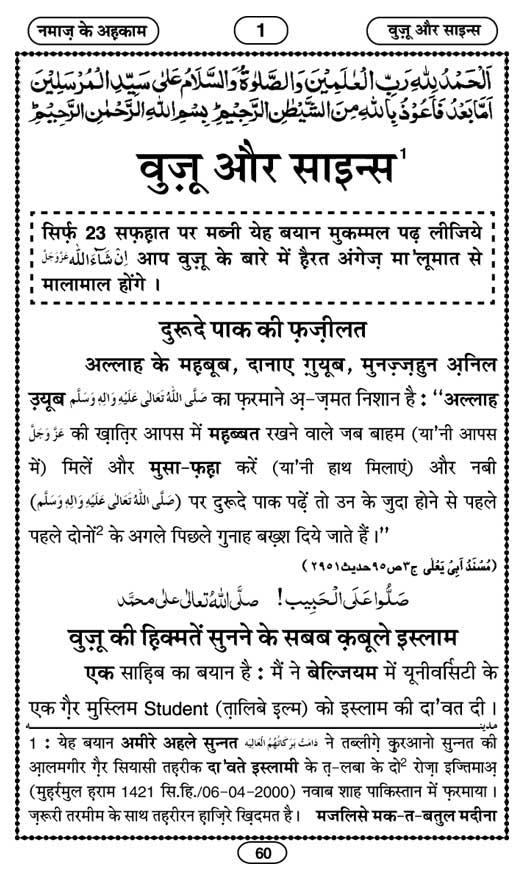 नमाज़ के अहकाम
1
वुज़ू और साइन्स
اَلْحَمْدُ لِلّٰهِ رَبِّ الْعٰلَمِیْنَ وَالصَّلٰوةُ وَالسَّلَامُ عَلٰی سَیِّدِ الْمُرْسَلِیْنَ
اَمَّا بَعْدُ فَاَعُوْذُ بِاللّٰهِ مِنَ الشَّیْطٰنِ الرَّجِیْمِ ؕ بِسْمِ اللّٰهِ الرَّحْمٰنِ الرَّحِیْمِ ؕ
वुज़ू और साइन्स¹
सिर्फ़ 23 सफ़हात पर मब्नी येह बयान मुकम्मल पढ़ लीजिये
اِنْ شَآءَاللّٰه عَزَّوَجَلَّ आप वुज़ू के बारे में हैरत अंगेज़ मा'लूमात से
मालामाल होंगे ।
दुरूदे पाक की फ़ज़ीलत
अल्लाह के महबूब, दानाए ग़ुयूब, मुनज़्ज़हुन अ़निल
उ़यूब صَلَّى اللّٰهُ تَعَالٰى عَلَيْهِ وَاٰلِهٖ وَسَلَّم का फ़रमाने अ़-ज़मत निशान है : "अल्लाह
عَزَّوَجَلَّ की ख़ात़िर आपस में महब्बत रखने वाले जब बाहम (या'नी आपस
में) मिलें और मुसा-फ़हा करें (या'नी हाथ मिलाएं) और नबी
(صَلَّى اللّٰهُ تَعَالٰى عَلَيْهِ وَاٰلِهٖ وَسَلَّم) पर दुरूदे पाक पढ़ें तो उन के जुदा होने से पहले
पहले दोनों² के अगले पिछले गुनाह बख़्श दिये जाते हैं ।"
(مُسْنَد اَبِیْ یَعْلٰی ج۳ص۹۵حدیث۲۹۵۱)
صَلُّوا عَلَى الْحَبِيْب! صلَّى اللّٰهُ تعالٰى على محمَّد
वुज़ू की ह़िक्मतें सुनने के सबब क़बूले इस्लाम
एक साह़िब का बयान है : मैं ने बेल्जियम में यूनीवर्सिटी के
एक ग़ैर मुस्लिम Student (त़ालिबे इ़ल्म) को इस्लाम की दा'वत दी ।
مدینه
1 : येह बयान अमीरे अहले सुन्नत دَامَتْ بَرَكَاتُهُمُ الْعَالِيَه ने तब्लीग़े क़ुरआनो सुन्नत की
आ़लमगीर ग़ैर सियासी तह़रीक दा'वते इस्लामी के त़-लबा के दो² रोज़ा इज्तिमाअ़
(मुह़र्रमुल ह़राम 1421 सि.हि./06-04-2000) नवाब शाह पाकिस्तान में फ़रमाया ।
ज़रूरी तरमीम के साथ तह़रीरन ह़ाज़िरे ख़िदमत है । मजलिसे मक-त-बतुल मदीना
60